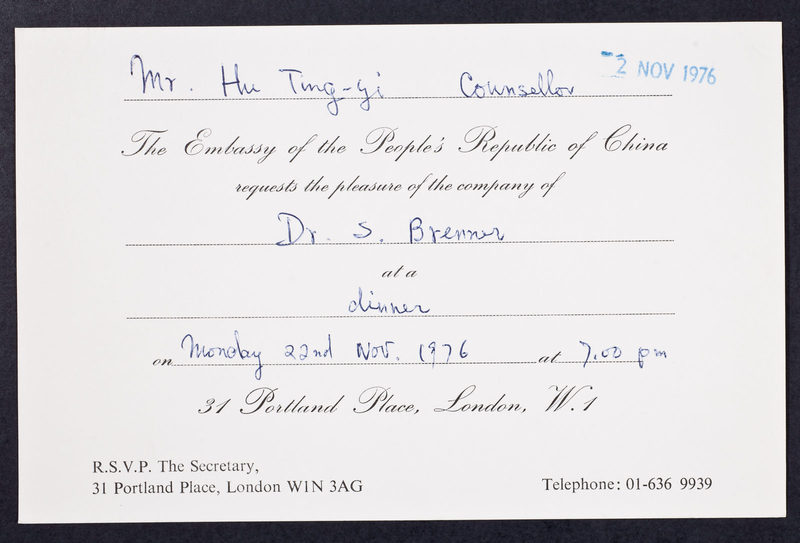 Mr. Hu Ting-yi Counsellor
2 NOV 1976
The Embassy of the People's Republic of China
requests the pleasure of the company of
Dr. S. Brenner
at a
dinner
on Monday 22nd Nov. 1976 at 7.00 pm
31 Portland Place, London, W.1
R.S.V.P. The Secretary,
31 Portland Place, London W1N 3AG
Telephone: 01-636 9939